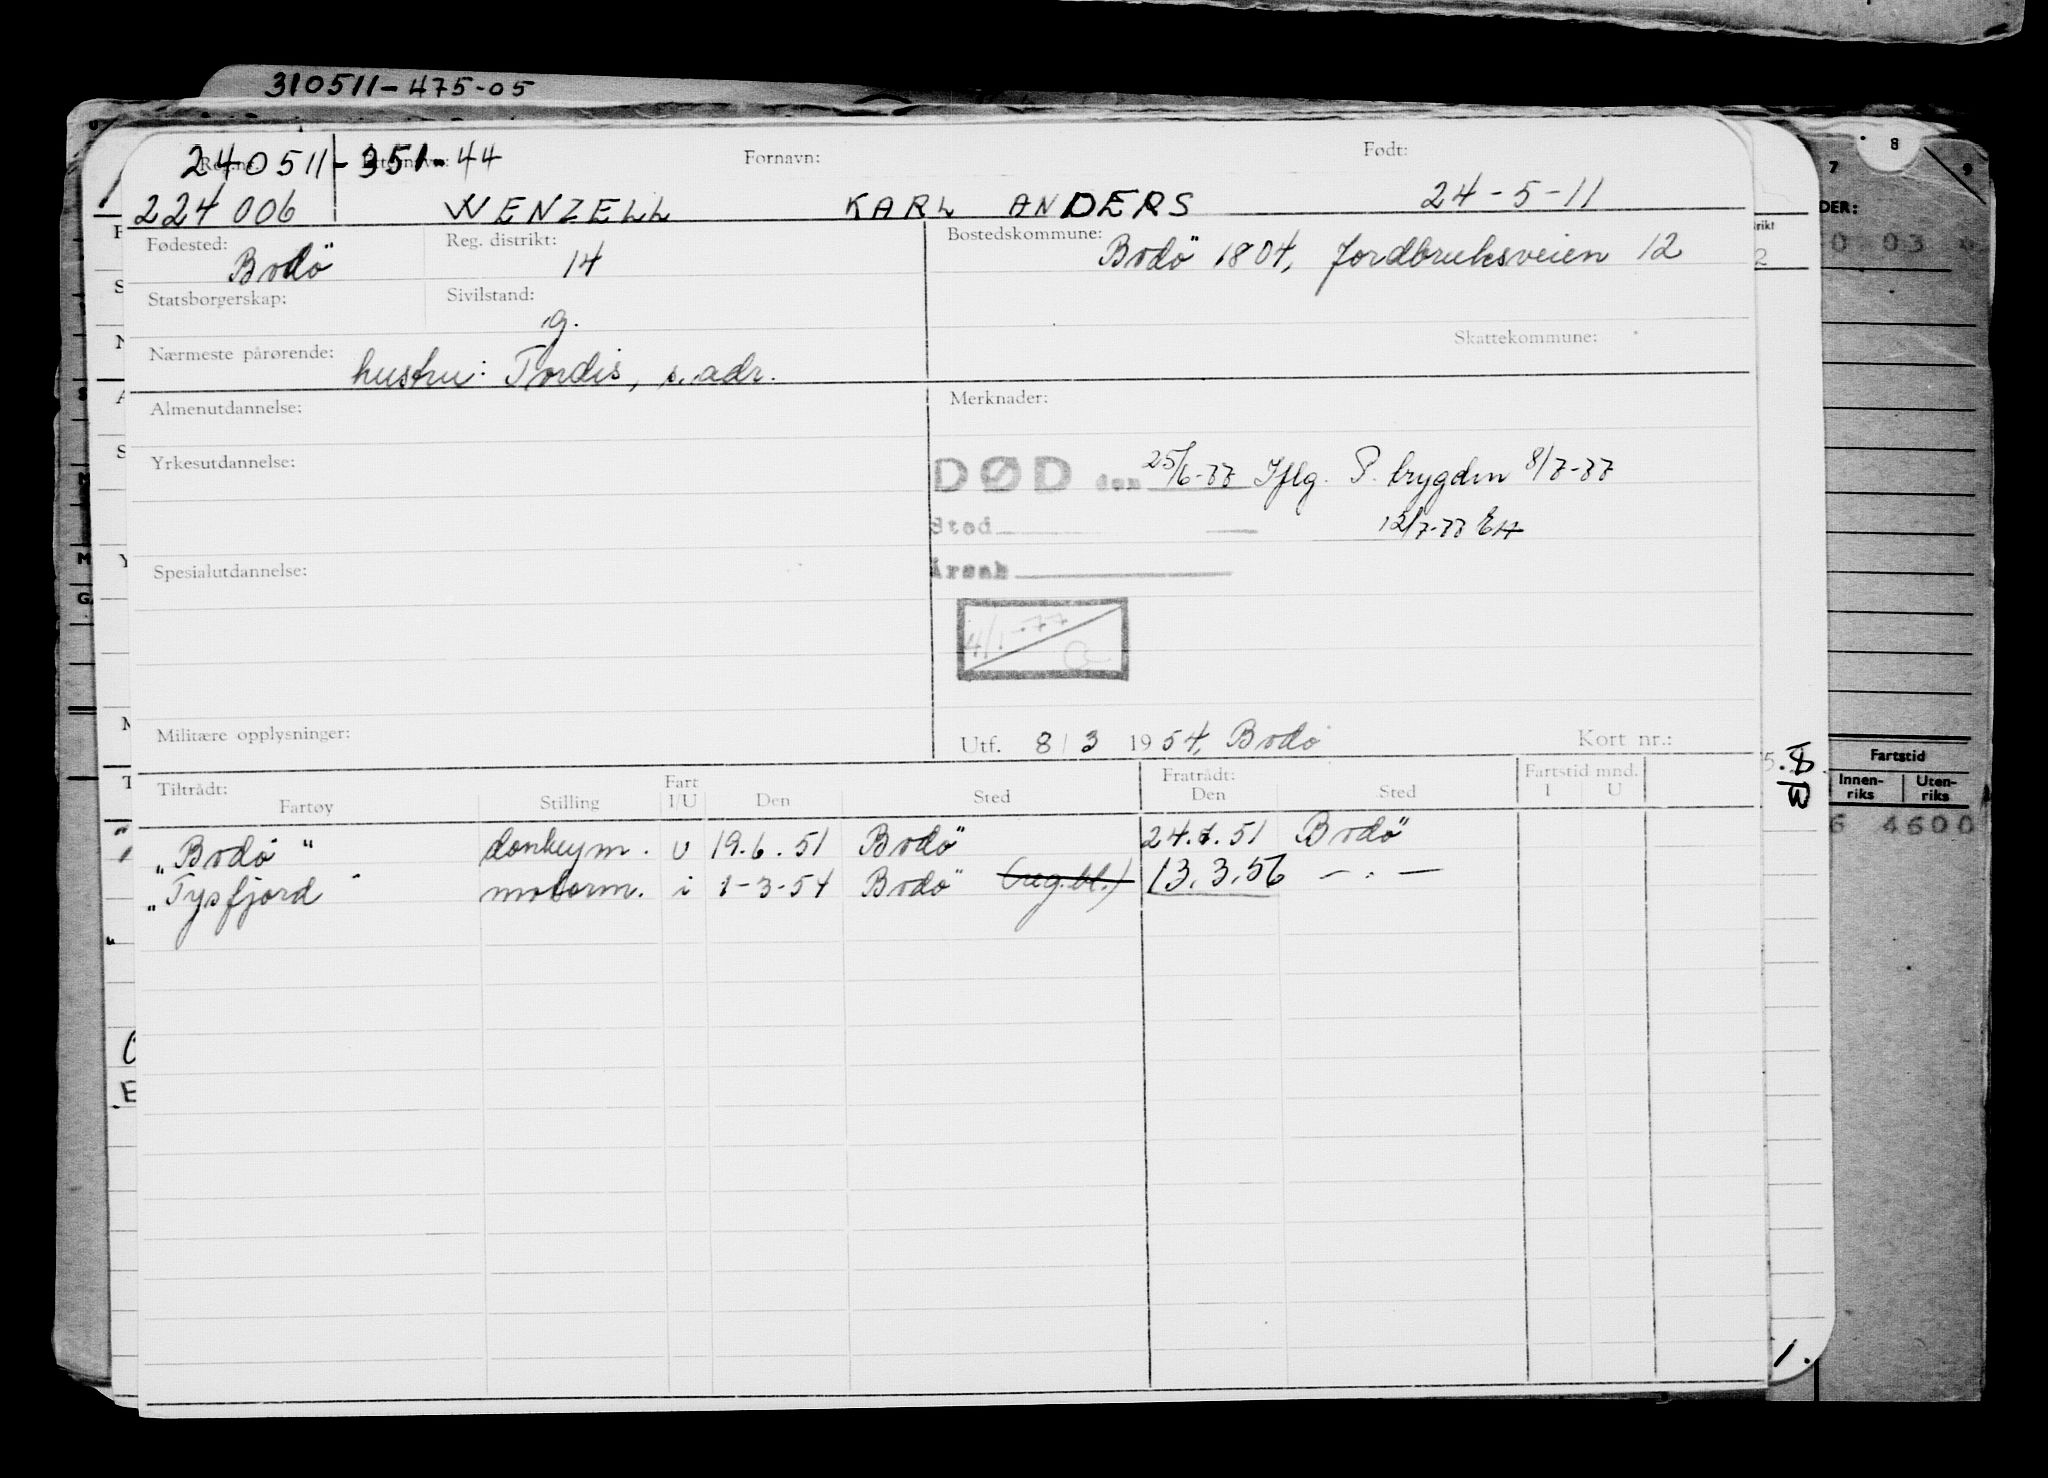 310511-475-05
240511-351-44
Reg.nr. Etternavn: Fornavn: Født:
224006 WENZELL KARL ANDERS 24-5-11
Fødested: Bodö Reg. distrikt: 14 Bostedskommune: Bodö 1804, Jordbruksveien 12
Statsborgerskap: Sivilstand: g.
Skattekommune:
Nærmeste pårørende: hustru: Tordis, s. adr.
Almenutdannelse: Merknader:
Yrkesutdannelse:
DØD den 25/6-77 Iflg. P. trygden 8/7-77
Sted 12/7-77 EH
Årsak
Spesialutdannelse:
4/1-77
Militære opplysninger: Utf. 8/3 1954, Bodø Kort nr.:
Tiltrådt: Fart Fratrådt: Fartstid mnd.
Fartøy Stilling I/U Den Sted Den Sted I U
"Bodø" donkeym. U 19.6.51 Bodö 24.6.51 Bodö
"Tysfjord" motorm. i 1-3-54 Bodö (reg.bl.) 13.3.56 — . —
7 8 9
DER:
0 03
Fartstid
Innen-riks Uten-riks
6 4600
8
W
1.